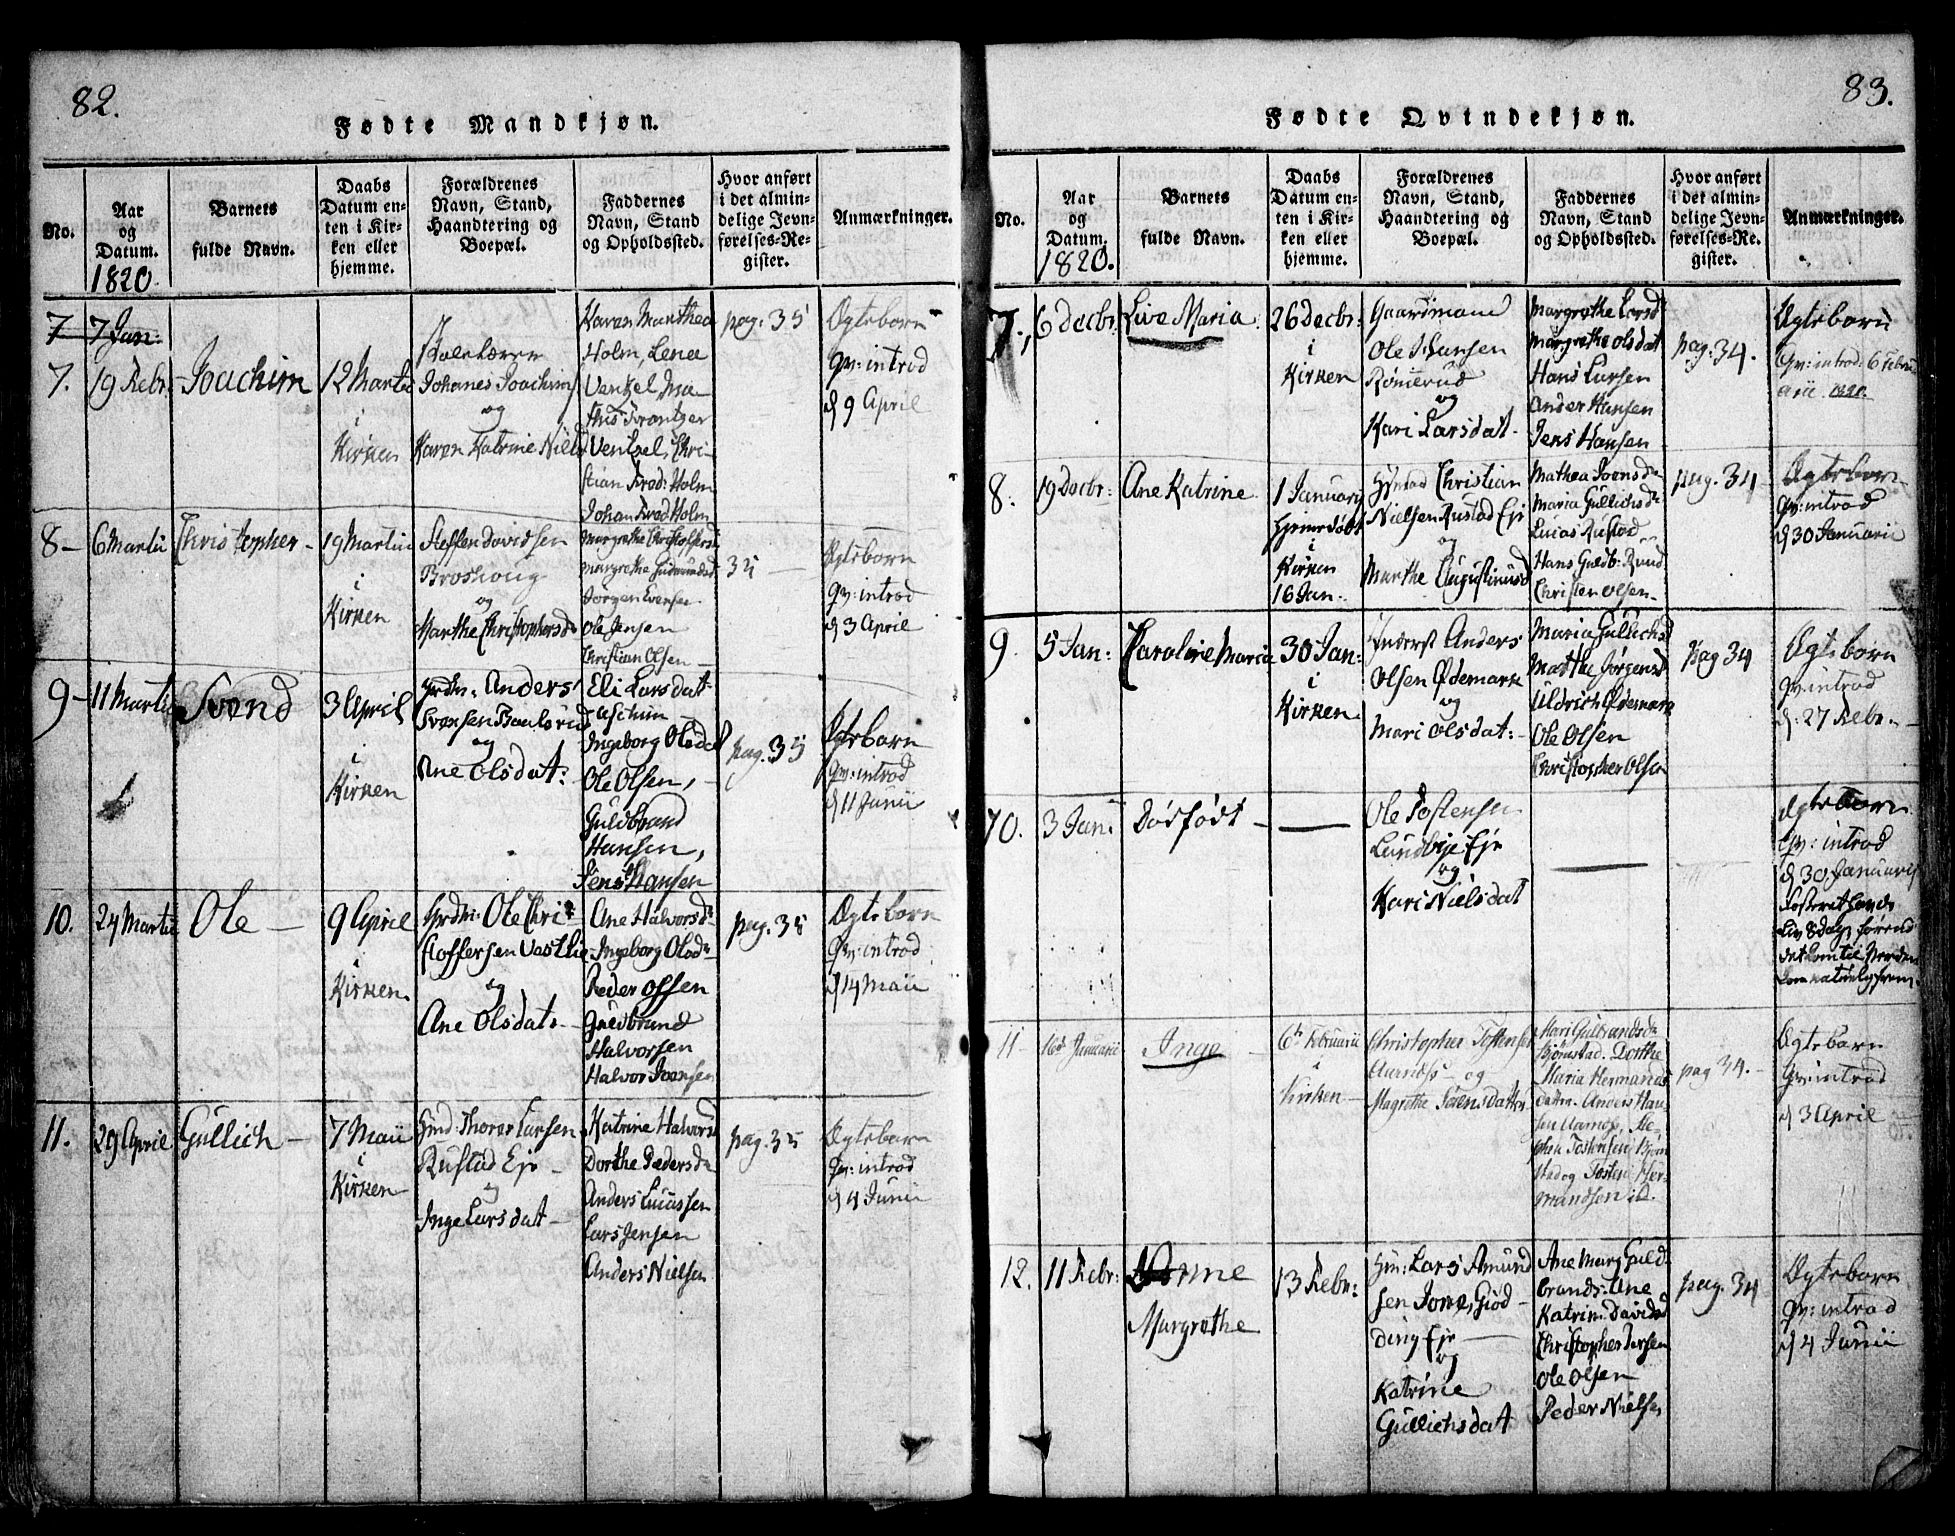 82.
Fødte Mandkjøn.
No.
Aar
og
Datum.
1820.
Barnets
fulde Navn.
Daabs
Datum en-
ten i Kir-
ken eller
hjemme.
Forældrenes
Navn, Stand,
Haandtering og
Boepæl.
Faddernes
Navn, Stand
og Opholdssted.
Hvor anført
i det almin-
delige Jevn-
førelses-Re-
gister.
Anmærkninger.
7 7 Jan:
7. 19 Febr.
Joachim
12 Martii
i
Kirken
Johanes Joachims
og
Karen Katrine Niels
Karen Marthea
Holm, Lene
Ventzel Ma-
this Frantzer
Ventzel, Chri-
stian Fred: Holm
Johan Fred Holm
pag: 35
Ægteborn
Qv: introd
d 9 April
8 - 6 Martii
Christopher -
19 Martii
i
Kirken
Steffen Davidsen
Broshoug
og
Marthe Christophersd
Margrethe Christophersd
Margrethe Gudmundsd
Jørgen Evensen
Ole Jensen
Christian Olsen -
35 -
Ægteborn
Qv: introd
d 3 April
9 - 11 Martii
Svend
3 April
i
Kirken
Grdm: Anders
Svensen
og
Ane Olsdat:
Eli Larsdat
Ingeborg Olsd
Ole Olsen,
Guldbrand
Hansen,
Jens Hansen
pag. 35
Ægteborn
Qv: introd
d 11 Junii
10. 24 Martii
Ole -
9 April
i
Kirken.
Grdm: Ole Chri-
stoffersen Vestlie
og
Ane Olsdat -
Ane Halvorsd
Ingeborg Olsd
Peder Olsen
Guldbrand
Halvorsen
Halvor Ivensen
pag. 35
Ægteborn
Qv: introd
d 14 Maii
11. 29 April
Gullich -
7 Maii
i
Kirken
Hmd: Thorer Larsen
Rustad Eje -
og
Inge Larsdat -
Katrine Halvorsd
Dorthe Pedersd
Anders Lucassen
Lars Jensen
Anders Nielsen
pag. 35
Ægteborn
Qv: introd
d 4 Junii
83.
Fødte Qvindekjøn.
No.
Aar
og
Datum.
1820.
Barnets
fulde Navn.
Daabs
Datum en-
ten i Kir-
ken eller
hjemme.
Forældrenes
Navn, Stand,
Haandtering og
Boepæl.
Faddernes
Navn, Stand
og Opholdssted.
Hvor anført
i det almin-
delige Jevn-
førelses-Re-
gister.
Anmærkninger.
7. 6 Decbr:
Live Maria.
26 Decbr:
i
Kirken
Gaardmand
Ole Hansen
Rømerud
og
Kari Larsdat -
Margrethe Larsd
Margrethe Olsdat
Hans Larsen
Ander Hansen
Jens Hansen
pag: 34.
Ægteborn
Qv: introd: 6 Febru
arii 1820.
8. 19 Decbr:
Ane Katrine
1 January
hjemedøbt
i
Kirken
16 Jan.
Christian
Nielsen Rustad Eje
og
Marthe Augustinusd
Mathea Ivensd
Maria Gullichsd
Lucas Rustad
Hans Guldb: Rund
Christen Olsen -
pag. 34
Ægteborn
Qv: introd
d 30 Januarii
9. 5 Jan:
Karoline Maria
30 Jan:
i
Kirken
Inderst Anders
Olsen Ødemark
og
Mari Olsdat: -
Maria Gullichsd
Marthe Jørgensd
Uldrich Ødemark
Ole Olsen
Christopher Olsen
pag 34
Ægteborn
Qv: introd
d: 27 Febr. -
10. 3 Jan:
Dødfødt -
-
Ole Tostensen
Lundbye Eje
og
Kari Nielsdat
-
Ægteborn
Qv: introd
d 30 Januarii
11 - 16d Januarii
Inge -
6te Februarii
i
Kirken -
Christopher Tostensen
Aarnæss - og
Magrethe Sørensdatter
Kari Gulbrandsd
Bjørnstad. Dorthe
Maria Hermands
datter. Anders Han-
sen Aarnæs, Ste-
phen Tostensen Bjørn
stad og Tosten Her-
mandsen ibd.
pag 34. -
Ægteborn
Qv: introd
d 3 April
12. 11 Febr:
Margrethe
13 Febr:
Hm: Lars Amund
sen
ding Eje -
og
Katrine
Gullichsdat
Ane Marg Guld-
brands: Ane
Katrin: Davidsd
Christopher Iversen
Ole Olsen
Peder Nielsen
pag. 34
Ægteborn
Qv: introd
d 4 Junii